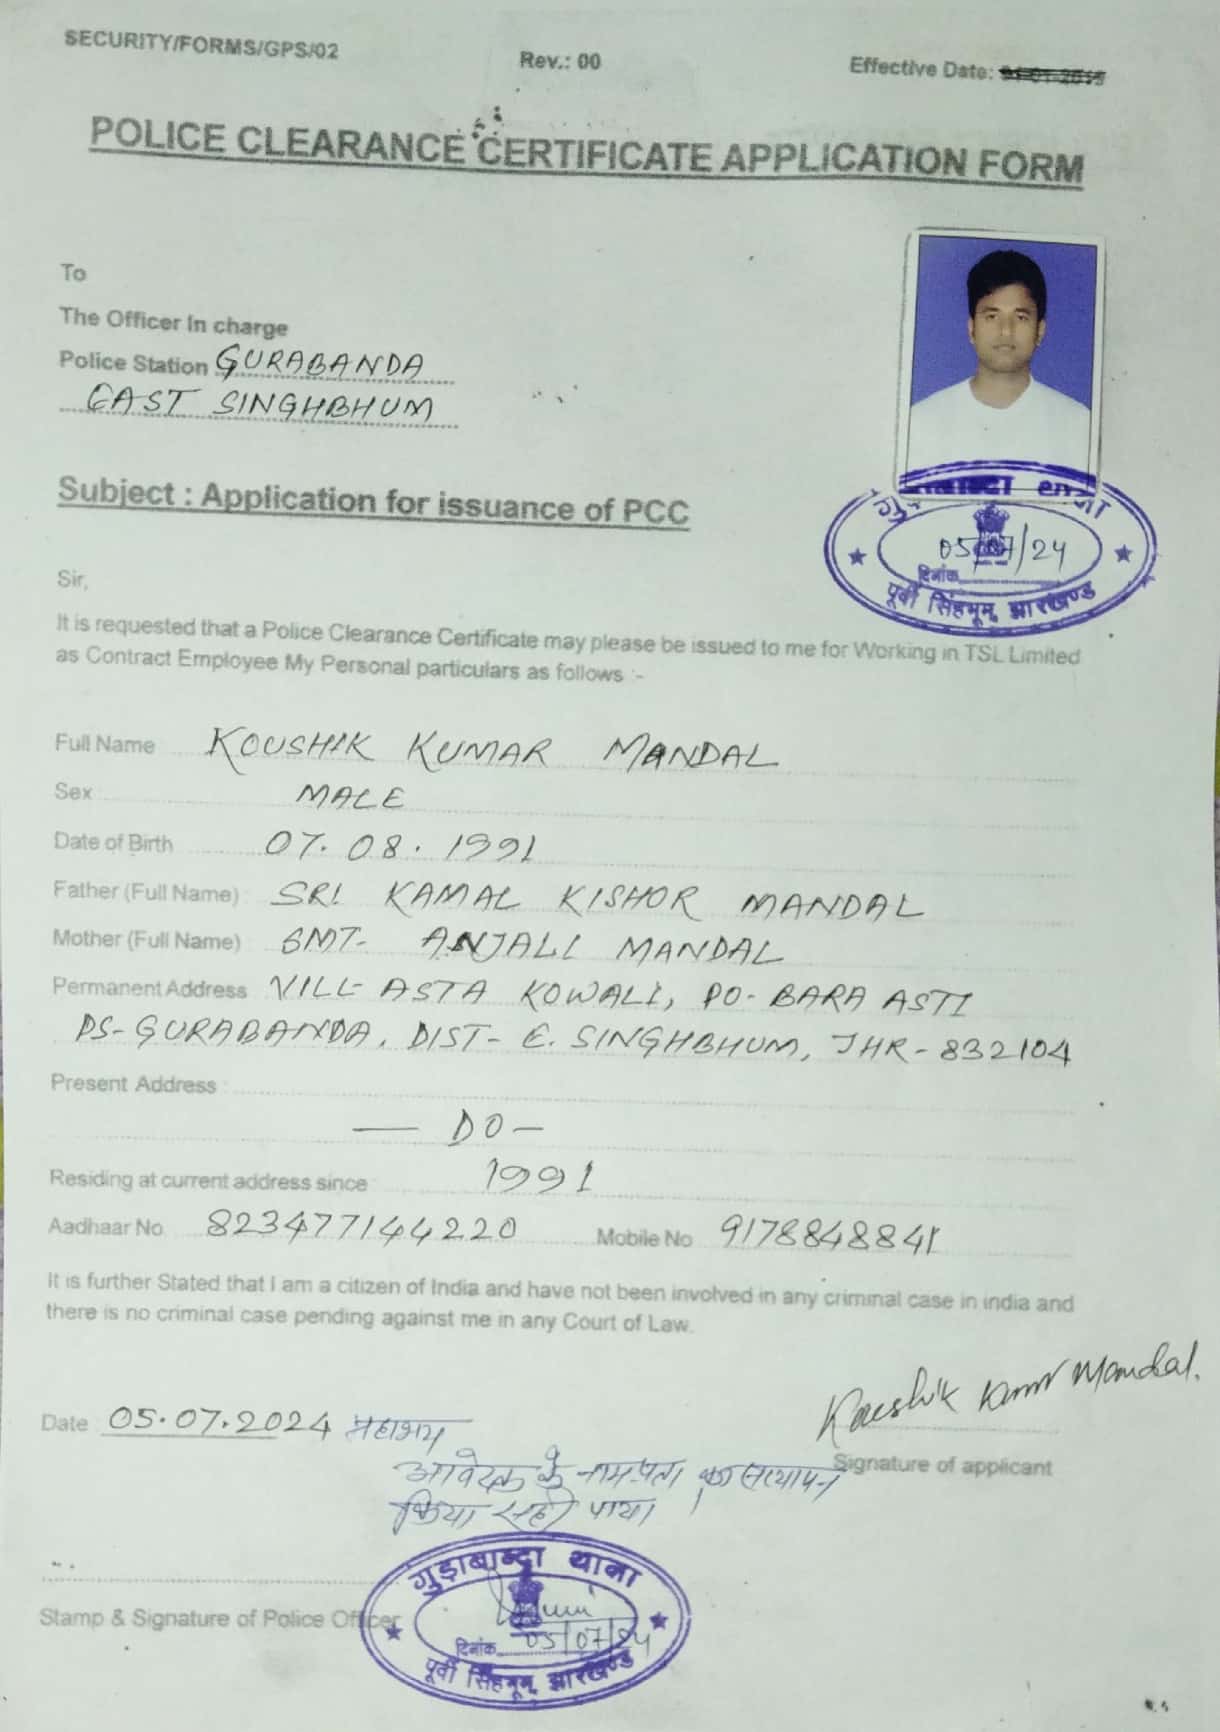 SECURITY/FORMS/GPS/02 Rev.: 00 Effective Date: 01-01-2015
POLICE CLEARANCE CERTIFICATE APPLICATION FORM
To
The Officer In charge
Police Station GURABANDA
EAST SINGHBHUM
गुड़ाबान्दा थाना
05/07/24
दिनांक
पूर्वी सिंहभूम, झारखण्ड
Subject : Application for issuance of PCC
Sir,
It is requested that a Police Clearance Certificate may please be issued to me for Working in TSL Limited
as Contract Employee My Personal particulars as follows :-
Full Name KOUSHIK KUMAR MANDAL
Sex MALE
Date of Birth 07.08.1991
Father (Full Name) SRI KAMAL KISHOR MANDAL
Mother (Full Name) SMT- ANJALI MANDAL
Permanent Address VILL- ASTA KOWALI, PO- BARA ASTI
PS- GURABANDA, DIST- E. SINGHBHUM, JHR - 832104
Present Address :
— DO —
Residing at current address since 1991
Aadhaar No 823477144220 Mobile No 9178848841
It is further Stated that I am a citizen of India and have not been involved in any criminal case in india and
there is no criminal case pending against me in any Court of Law.
Koushik Kumar Mandal.
Date 05.07.2024 महाशय
Signature of applicant
आवेदक के नाम पता का सत्यापन
किया सही पाया।
Stamp & Signature of Police Officer
गुड़ाबान्दा थाना
दिनांक 05/07/24
पूर्वी सिंहभूम, झारखण्ड